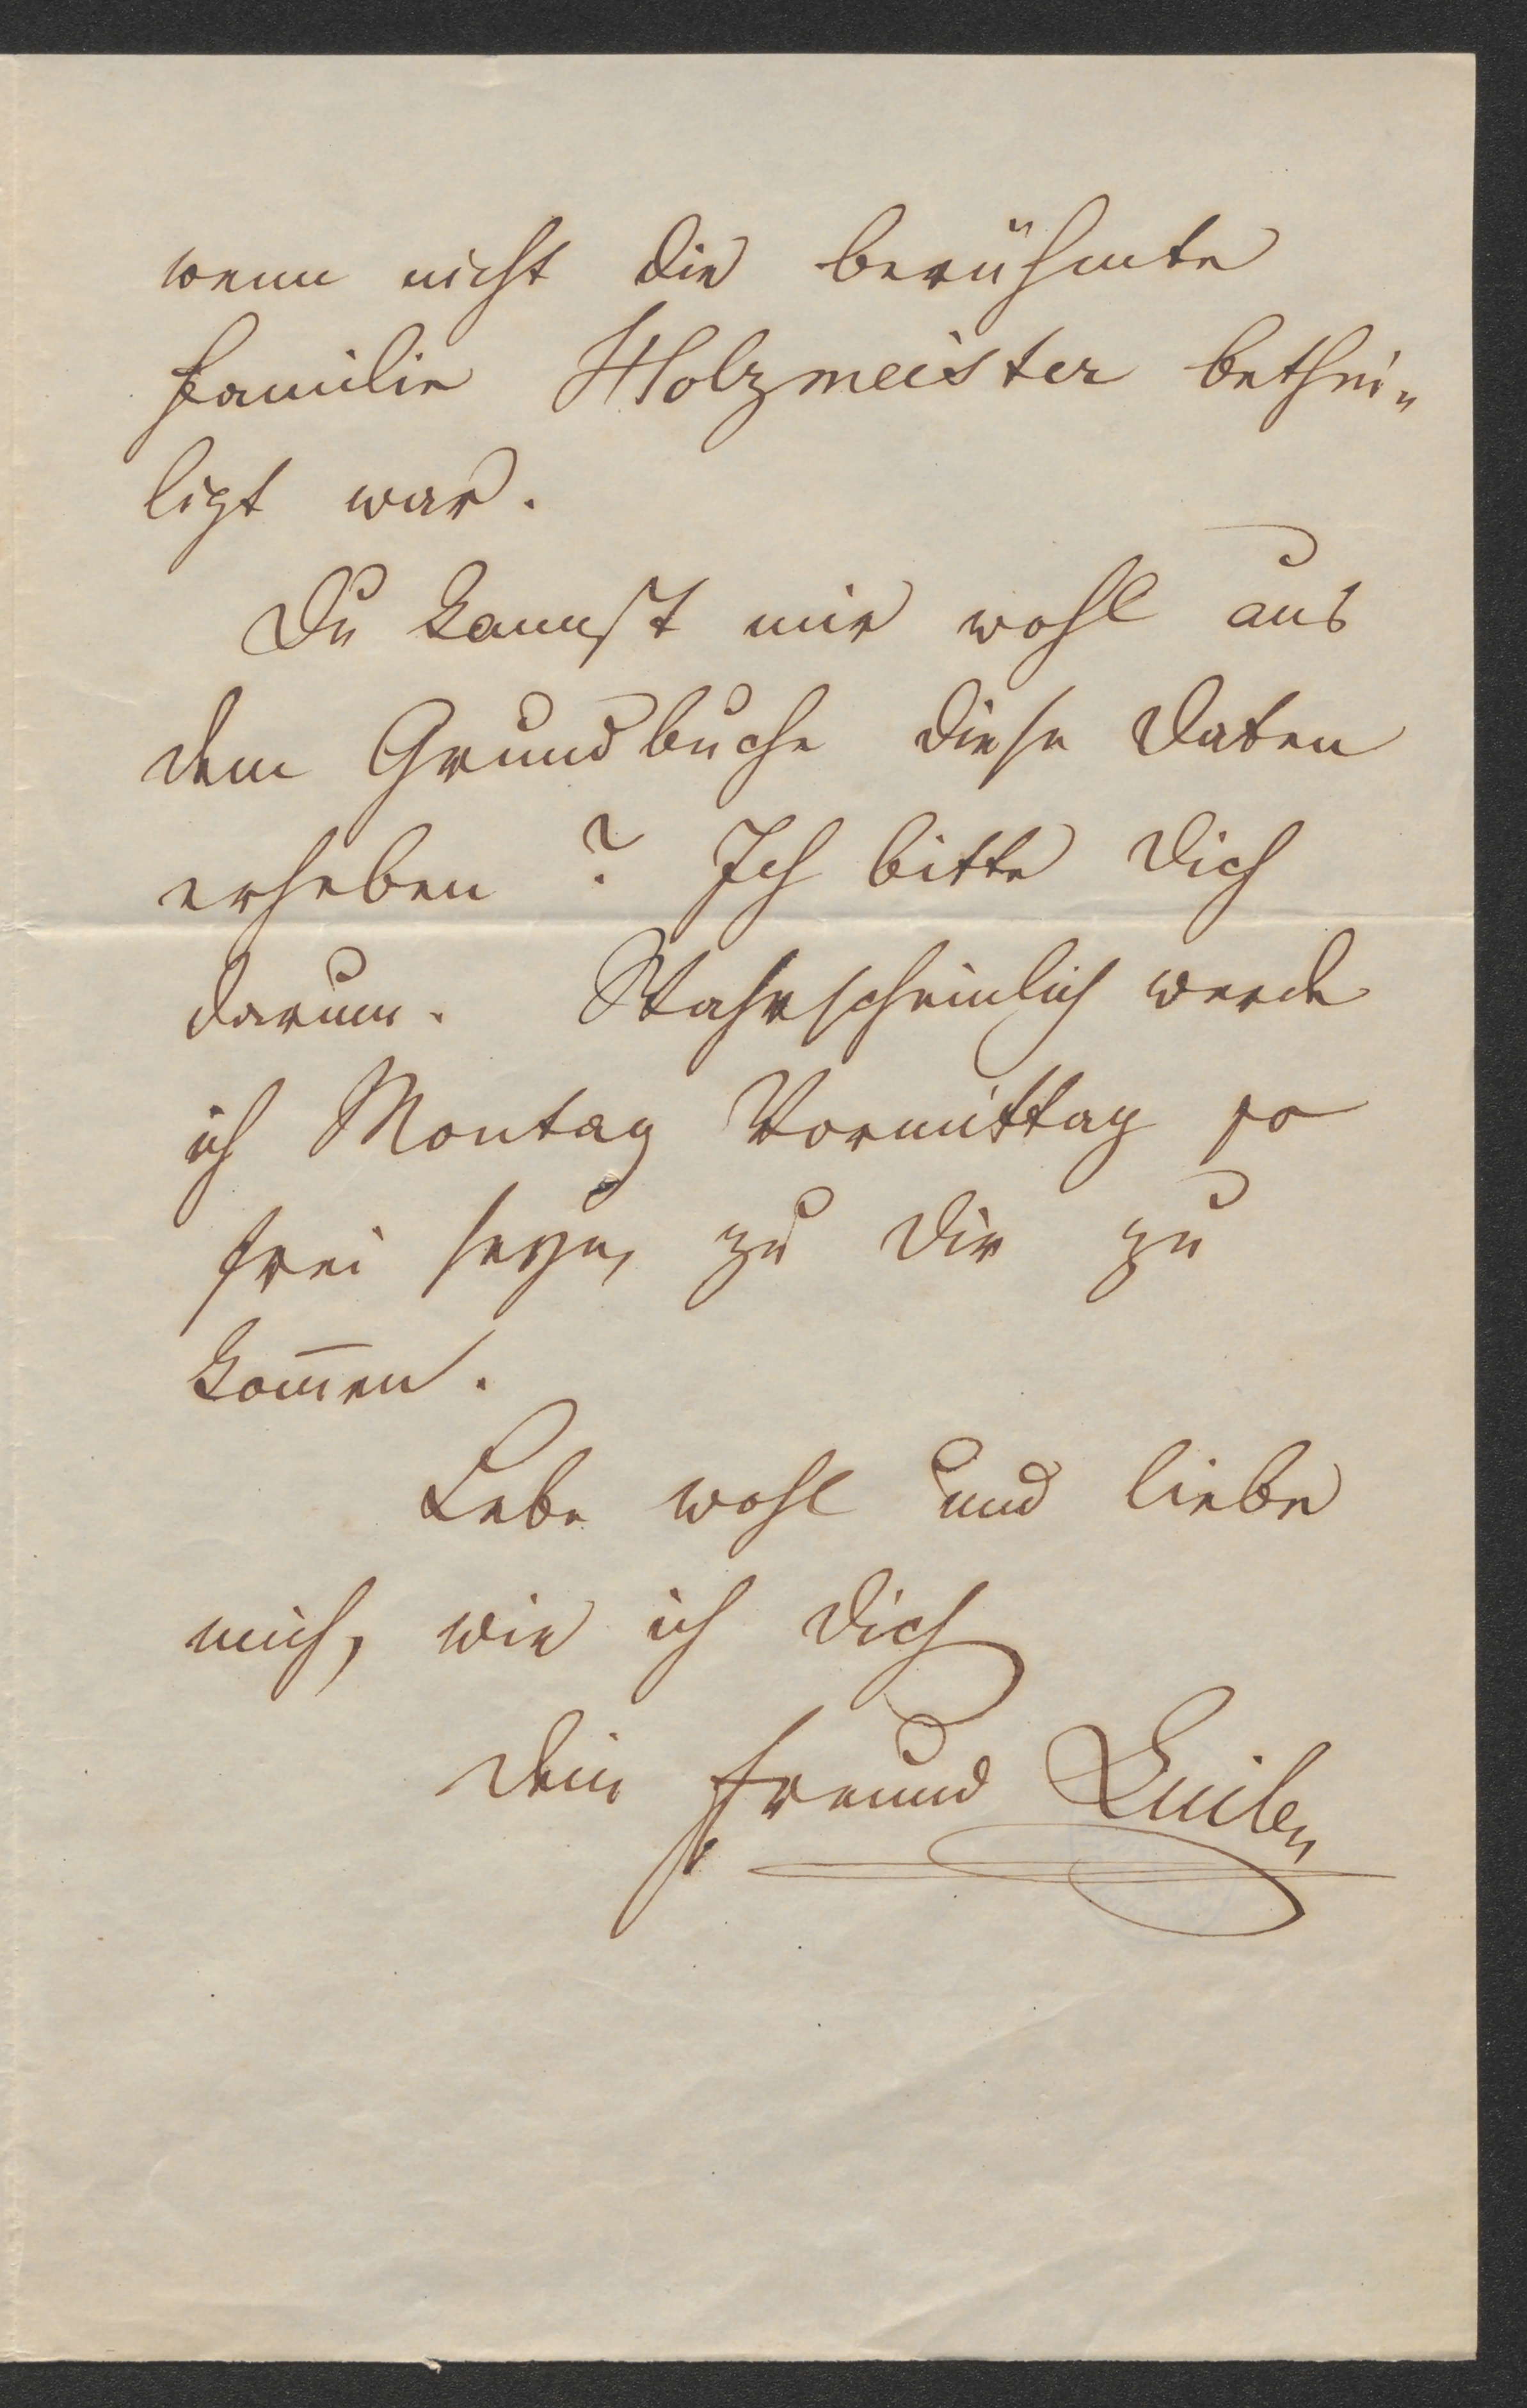 wenn nicht die berühmte
Familie Holzmeister bethei„
ligt war.
Du kannst mir wohl aus
dem Grundbuche diese Daten
erheben? Ich bitte Dich
darum. Wahrscheinlich werde
ich Montag Vormittag so
frei seyn, zu Dir zu
kom̅en.
Lebe wohl und liebe
mich, wie ich Dich
Dein Freund